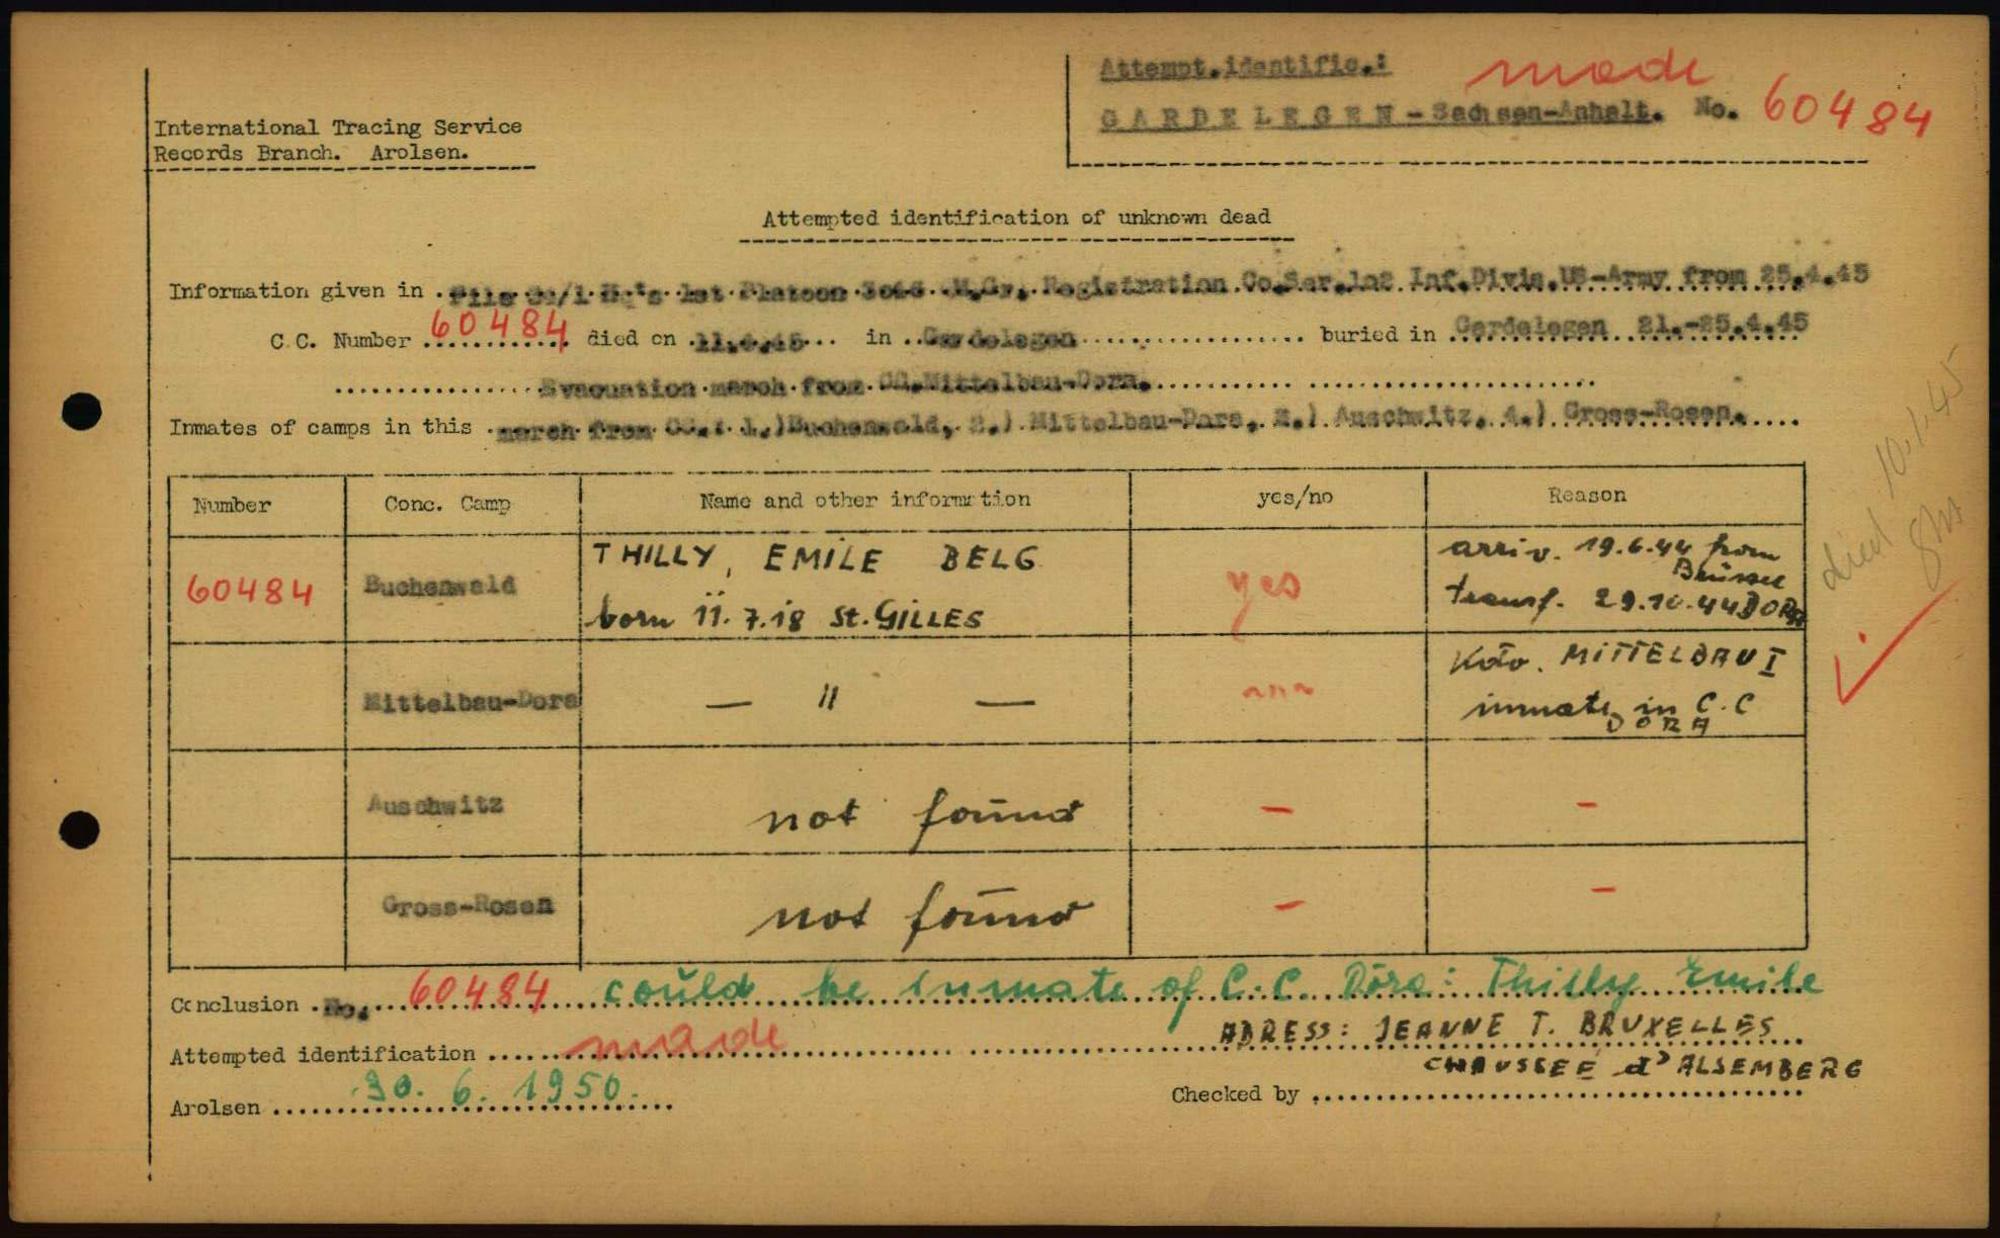 Attempt.identific.: made
GARDELEGEN - Sachsen-Anhalt. No. 60484
International Tracing Service
Records Branch. Arolsen.
Attempted identification of unknown dead
Information given in . 1st Platoon Registration Co. Inf.Divis.US-Army from 25.4.45
C.C. Number 60484 died on in Gardelegen buried in Gardelegen 21.-25.4.45
Evacuation march from CC.Mittelbau-Dora.
Inmates of camps in this march from CC.: 1.)Buchenwald, 2.) Mittelbau-Dora, Auschwitz, 4.) Gross-Rosen.
Number Conc. Camp Name and other information yes/no Reason
60484 Buchenwald THILLY, EMILE BELG
born 11.7.18 St.GILLES yes arriv. 19.6.44 from
Brüssel
transf. 29.10.44 DORA
Mittelbau-Dora — " — Kdo. MITTELBAU I
inmate in C.C
DORA
Auschwitz not found — —
Gross-Rosen not found — —
died 10.1.45
Conclusion No. 60484 could be inmate of C.C. Dora: Thilly Emile
Attempted identification made ADRESS: JEANNE T. BRUXELLES
CHAUSSEE d'ALSEMBERG
Arolsen 30. 6. 1950. Checked by